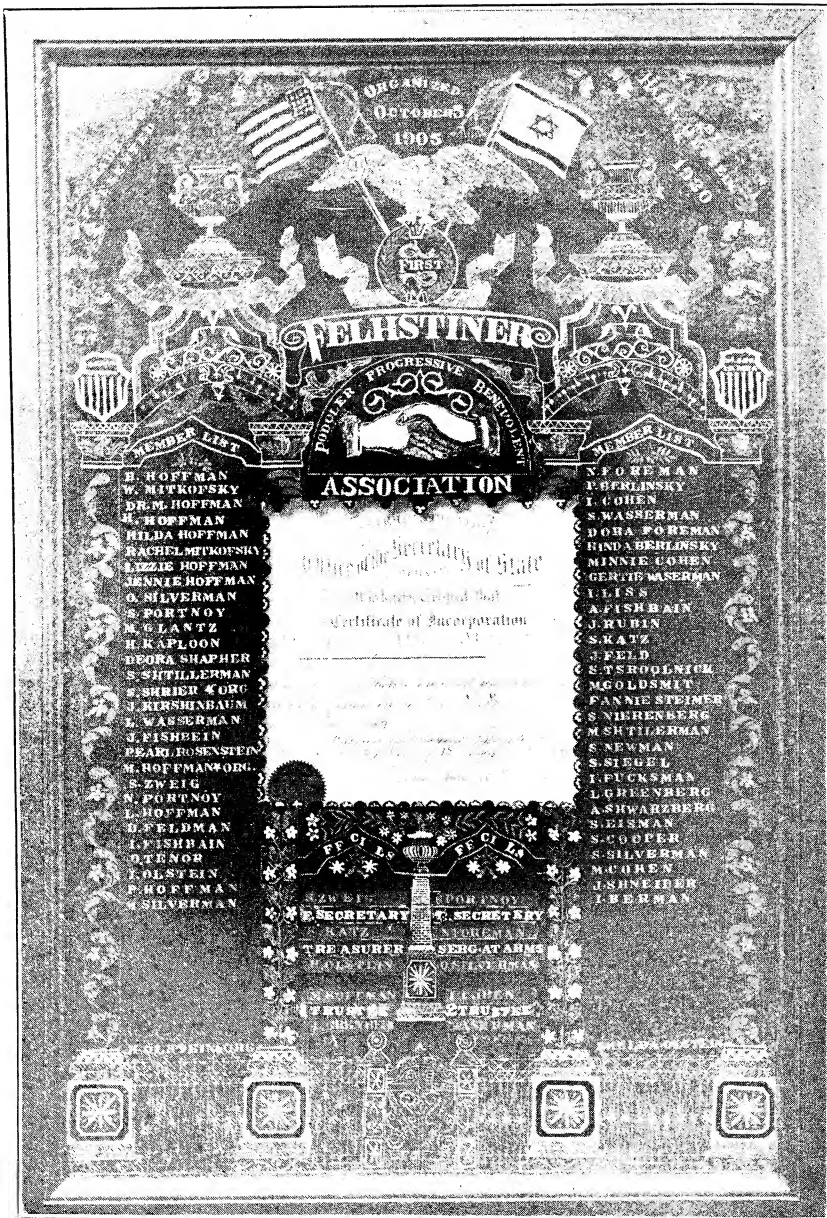 ORGANIZED
OCTOBER 5
1905
1920
FIRST
FELHSTINER
PODULER PROGRESSIVE BENEVOLENT
ASSOCIATION
MEMBER LIST
H. HOFFMAN
W. MITKOFSKY
DR. M. HOFFMAN
H. HOFFMAN
HILDA HOFFMAN
RACHEL MITKOFSKY
LIZZIE HOFFMAN
JENNIE HOFFMAN
O. SILVERMAN
S. PORTNOY
M. GLANTZ
H. KAPLOON
DEORA SHAPHER
S. SHTILLERMAN
S. SHRIER ORG
J. KIRSHINBAUM
L. WASSERMAN
J. FISHBEIN
PEARL ROSENSTEIN
M. HOFFMAN ORG.
S. ZWEIG
N. PORTNOY
L. HOFFMAN
D. FELDMAN
I. FISHBAIN
O. TENOR
I. OLSTEIN
P. HOFFMAN
SILVERMAN
MEMBER LIST
N. FOREMAN
P. BERLINSKY
I. COHEN
S. WASSERMAN
DORA FOREMAN
HINDA BERLINSKY
MINNIE COHEN
GERTIE WASERMAN
I. LISS
A. FISHBAIN
J. RUBIN
S. KATZ
J. FELD
S. TSROOLNICK
M. GOLDSMIT
FANNIE STEIMER
S. NIERENBERG
M. SHTILERMAN
S. NEWMAN
S. SIEGEL
I. FUCKSMAN
L. GREENBERG
A. SHWARZBERG
S. EISMAN
S. COOPER
S. SILVERMAN
M. COHEN
J. SHNEIDER
I. BERMAN
Office of the Secretary of State
Certificate of Incorporation
FFCILS FFCILS
ZWEIG PORTNOY
F. SECRETARY SECRETARY
KATZ FOREMAN
TREASURER SERG-AT ARMS
OLSTEIN O. SILVERMAN
M. HOFFMAN COHEN
1 TRUSTEE 2 TRUSTEE